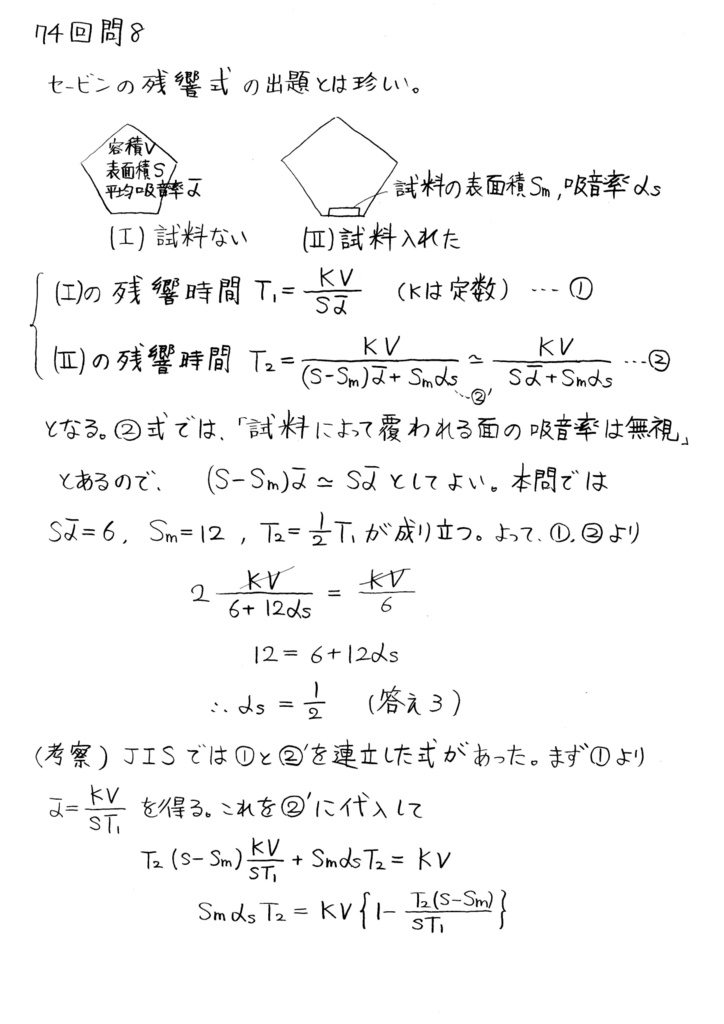 74回問8
セービンの残響式の出題とは珍しい。
容積V
表面積S
平均吸音率α̅
試料の表面積Sm, 吸音率αs
(Ⅰ)試料ない (Ⅱ)試料入れた
(Ⅰ)の残響時間 T₁ = KV/Sα̅ (Kは定数) … ①
(Ⅱ)の残響時間 T₂ = KV/((S-Sm)α̅+Smαs) …②' ≃ KV/(Sα̅+Smαs) …②
となる。②式では、「試料によって覆われる面の吸音率は無視」
とあるので、 (S-Sm)α̅ ≃ Sα̅ としてよい。本問では
Sα̅=6, Sm=12, T₂=1/2 T₁ が成り立つ。よって、①,②より
2 KV/(6+12αs) = KV/6
12 = 6+12αs
∴ αs = 1/2 (答え3)
(考察) JISでは①と②'を連立した式があった。まず①より
α̅ = KV/ST₁ を得る。これを②'に代入して
T₂(S-Sm) KV/ST₁ + SmαsT₂ = KV
SmαsT₂ = KV{1- T₂(S-Sm)/ST₁}